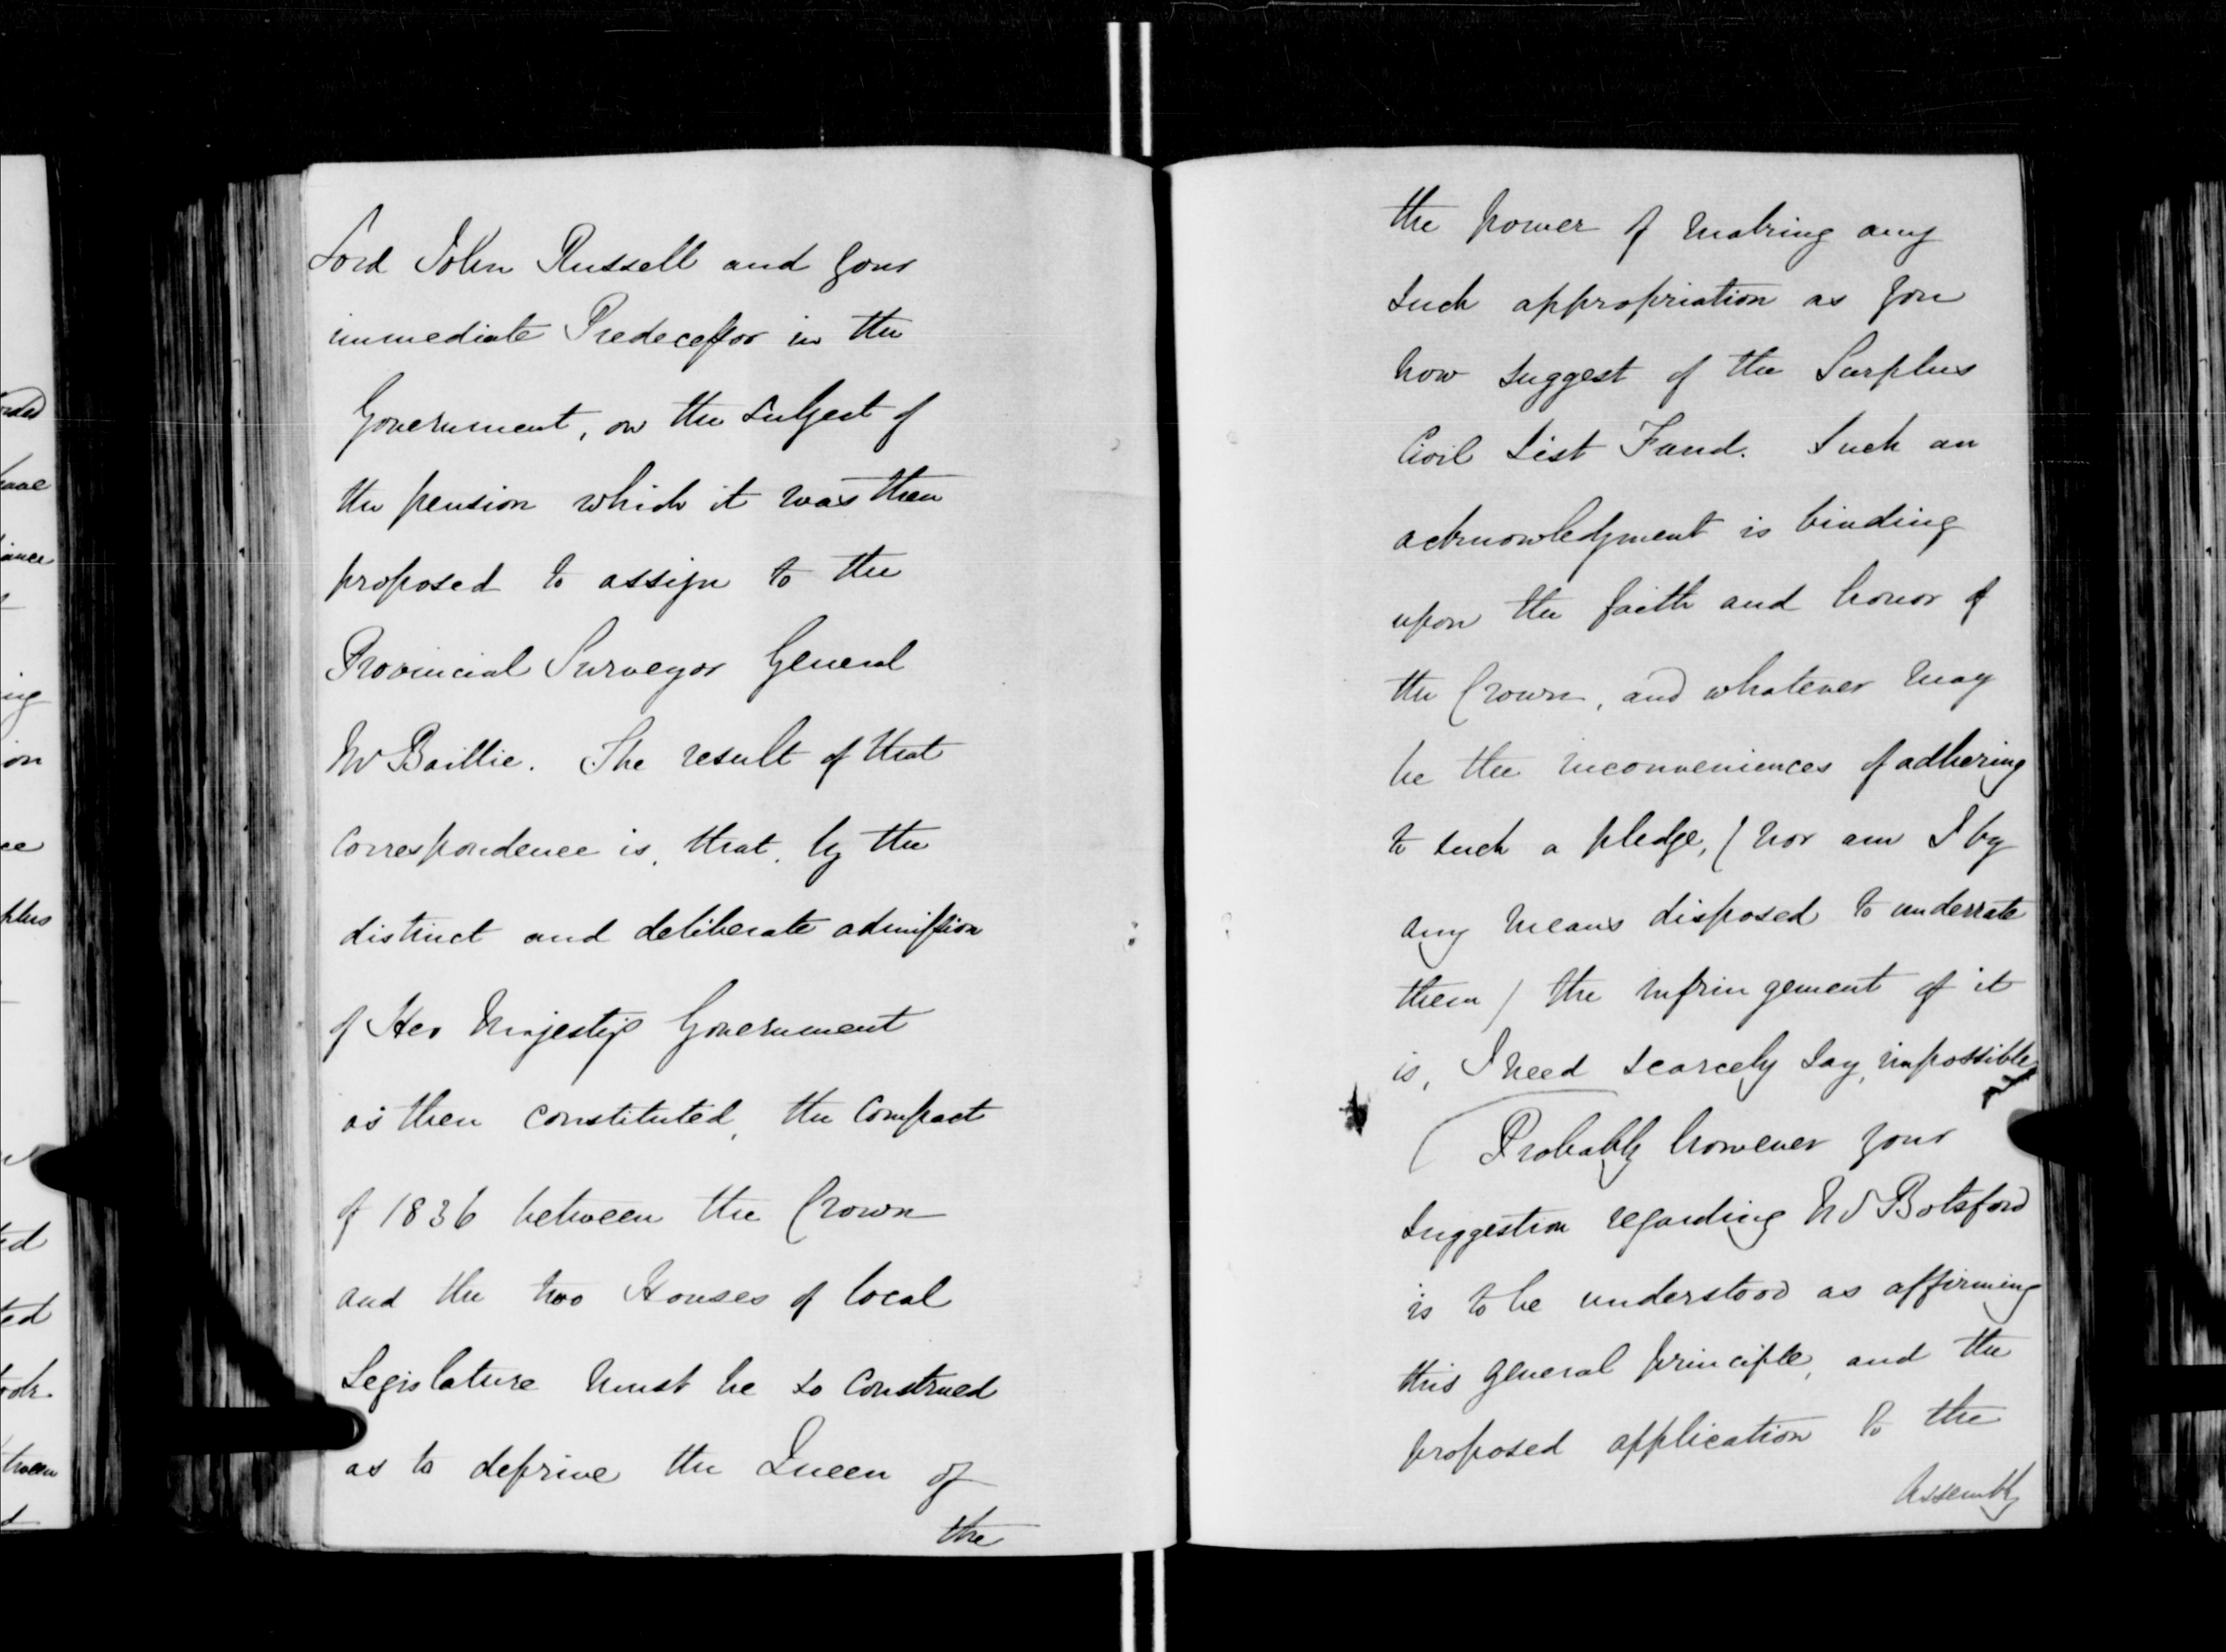 Lord John Russell and your
immediate Predecessor in the
Government, on the subject of
the pension which it was then
proposed to assign to the
Provincial Surveyor General
Mr Baillie. The result of that
correspondence is, that, by the
distinct and deliberate admission
of Her Majesty's Government
as then constituted, the compact
of 1836 between the Crown
and the two Houses of local
Legislature must be so construed
as to deprive the Queen of
the
the power of making any
such appropriation as you
now suggest of the Surplus
Civil List Fund. Such an
acknowledgment is binding
upon the faith and honor of
the Crown, and whatever may
be the inconveniences of adhering
to such a pledge, (nor am I by
any means disposed to underrate
them) the infringement of it
is, I need scarcely say, impossible
Probably however your
suggestion regarding Mr Botsford
is to be understood as affirming
this general principle, and the
proposed application to the
Assembly